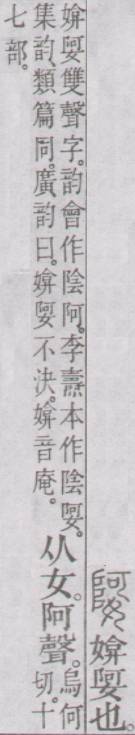 娿 媕娿也。
媕娿雙聲字。韵會作陰阿。李燾本作陰娿。
集韵、類篇同。廣韵曰。媕娿不決。媕音庵。
从女。阿聲。
烏何
切。十
七部。